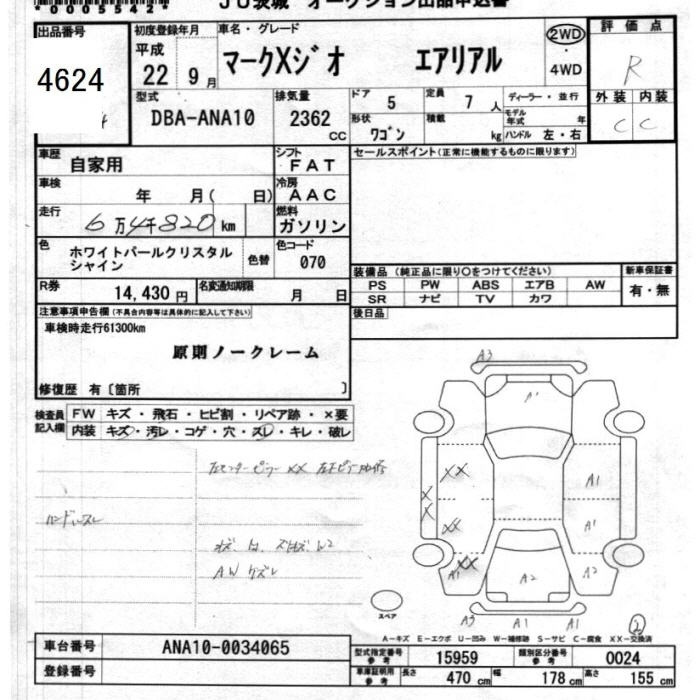 *0005542*
JU茨城 オークション出品申込書
出品番号
4624
初度登録年月
平成
22 9 月
車名・グレード
マークXジオ エアリアル
2WD
・
4WD
評価点
R
外装 内装
C C
型式
DBA-ANA10
排気量
2362 CC
ドア 5
定員 7 人
形状 ワゴン
積載 kg
ディーラー・並行
モデル年式 年
ハンドル 左・右
車歴 自家用
シフト FAT
セールスポイント(正常に機能するものに限ります)
車検 年 月( 日)
冷房 AAC
走行 6万4千820 km
燃料 ガソリン
色 ホワイトパールクリスタル
シャイン
色替
色コード 070
装備品(純正品に限り○をつけてください)
PS PW ABS エアB AW
SR ナビ TV カワ
新車保証書
有・無
R券 14,430円
名変通知期限 月 日
後日品
注意事項申告欄(不具合内容等は具体的に記入して下さい)
車検時走行61300km
原則ノークレーム
修復歴 有〔箇所 〕
検査員記入欄
FW キズ・飛石・ヒビ割・リペア跡・×要
内装 キズ・汚レ・コゲ・穴・スレ・キレ・破レ
左センターピラーXX
ハンドルスレ
AWケズレ
A3
A1
XX
A1
X
X
XX
A1
XX
A1
A2
A2
A3 A1 A1
スペア
2
A-キズ E-エクボ U-凹み W-補修跡 S-サビ C-腐食 XX-交換済
車台番号 ANA10-0034065
登録番号
型式指定番号 参考 15959
類別区分番号 参考 0024
車庫証明用 参考 長さ 470 cm 幅 178 cm 高さ 155 cm